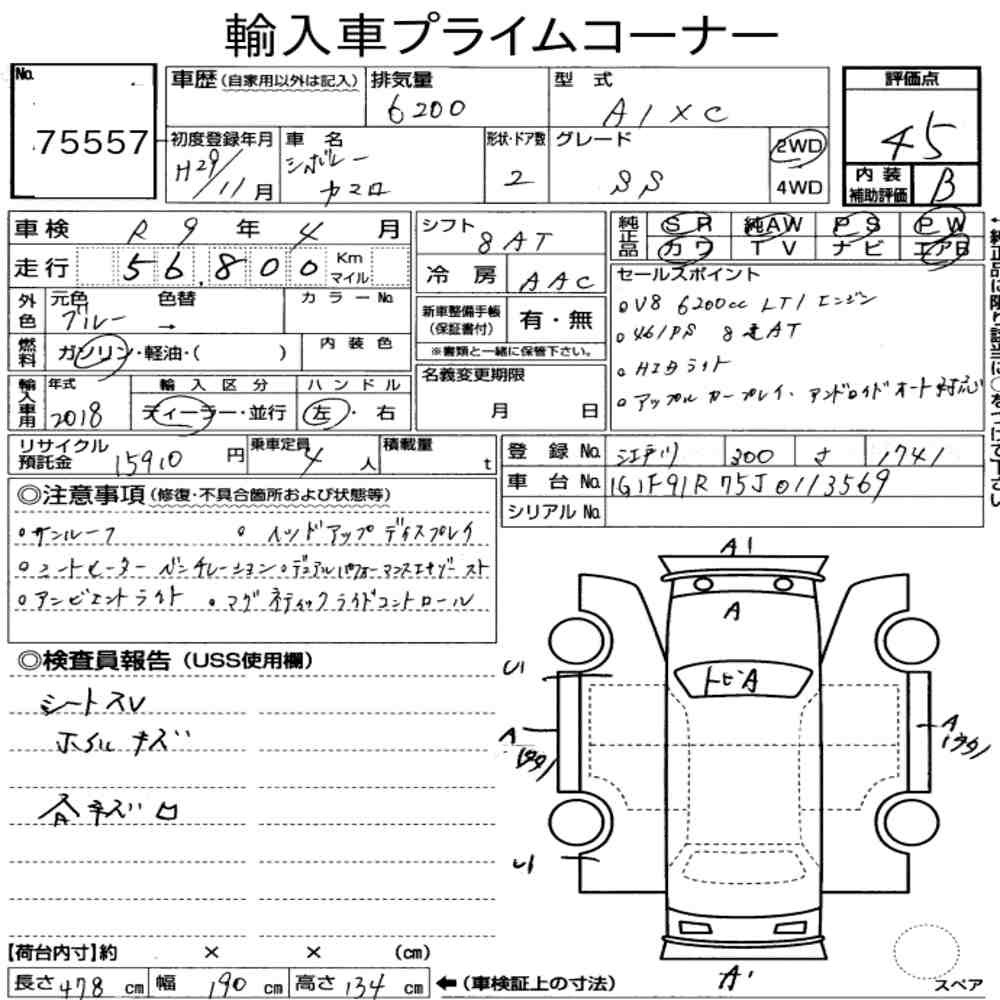 輸入車プライムコーナー
No.
75557
車歴 (自家用以外は記入)
排気量
6200
型式
A1XC
評価点
45
初度登録年月
H29/11月
車名
シボレー
カマロ
形状・ドア数
2
グレード
SS
2WD
4WD
内装補助評価
B
車検 R9年4月
シフト
8AT
純正品
SR 純AW PS PW
カワ TV ナビ エアB
走行 56,800 Km マイル
冷房 AAC
セールスポイント
。V8 6200cc LT1エンジン
。461PS 8速AT
。HIDライト
。アップルカープレイ・アンドロイドオート対応
←純正品に限り該当に○をつけて下さい
外色
元色 色替
ブルー →
カラーNo.
新車整備手帳(保証書付) 有・無
※書類と一緒に保管下さい。
燃料
ガソリン・軽油・( )
内装色
名義変更期限
月 日
輸入車用
年式
2018
輸入区分
ディーラー・並行
ハンドル
左・右
リサイクル預託金 15910円
乗車定員 4人
積載量 t
登録No. 300 さ 1741
車台No. 1G1F91R75J0113569
シリアルNo.
◎注意事項 (修復・不具合箇所および状態等)
。サンルーフ 。ヘッドアップディスプレイ
。シートヒーター ベンチレーション 。デュアルパフォーマンスエキゾースト
。アンビエントライト 。マグネティックライドコントロール
◎検査員報告 (USS使用欄)
シートスレ
ホイルキズ
各キズ
A1
A
トビA
U1
A
A
U1
A1
【荷台内寸】約 × × (cm)
長さ 478 cm 幅 190 cm 高さ 134 cm ←(車検証上の寸法)
スペア